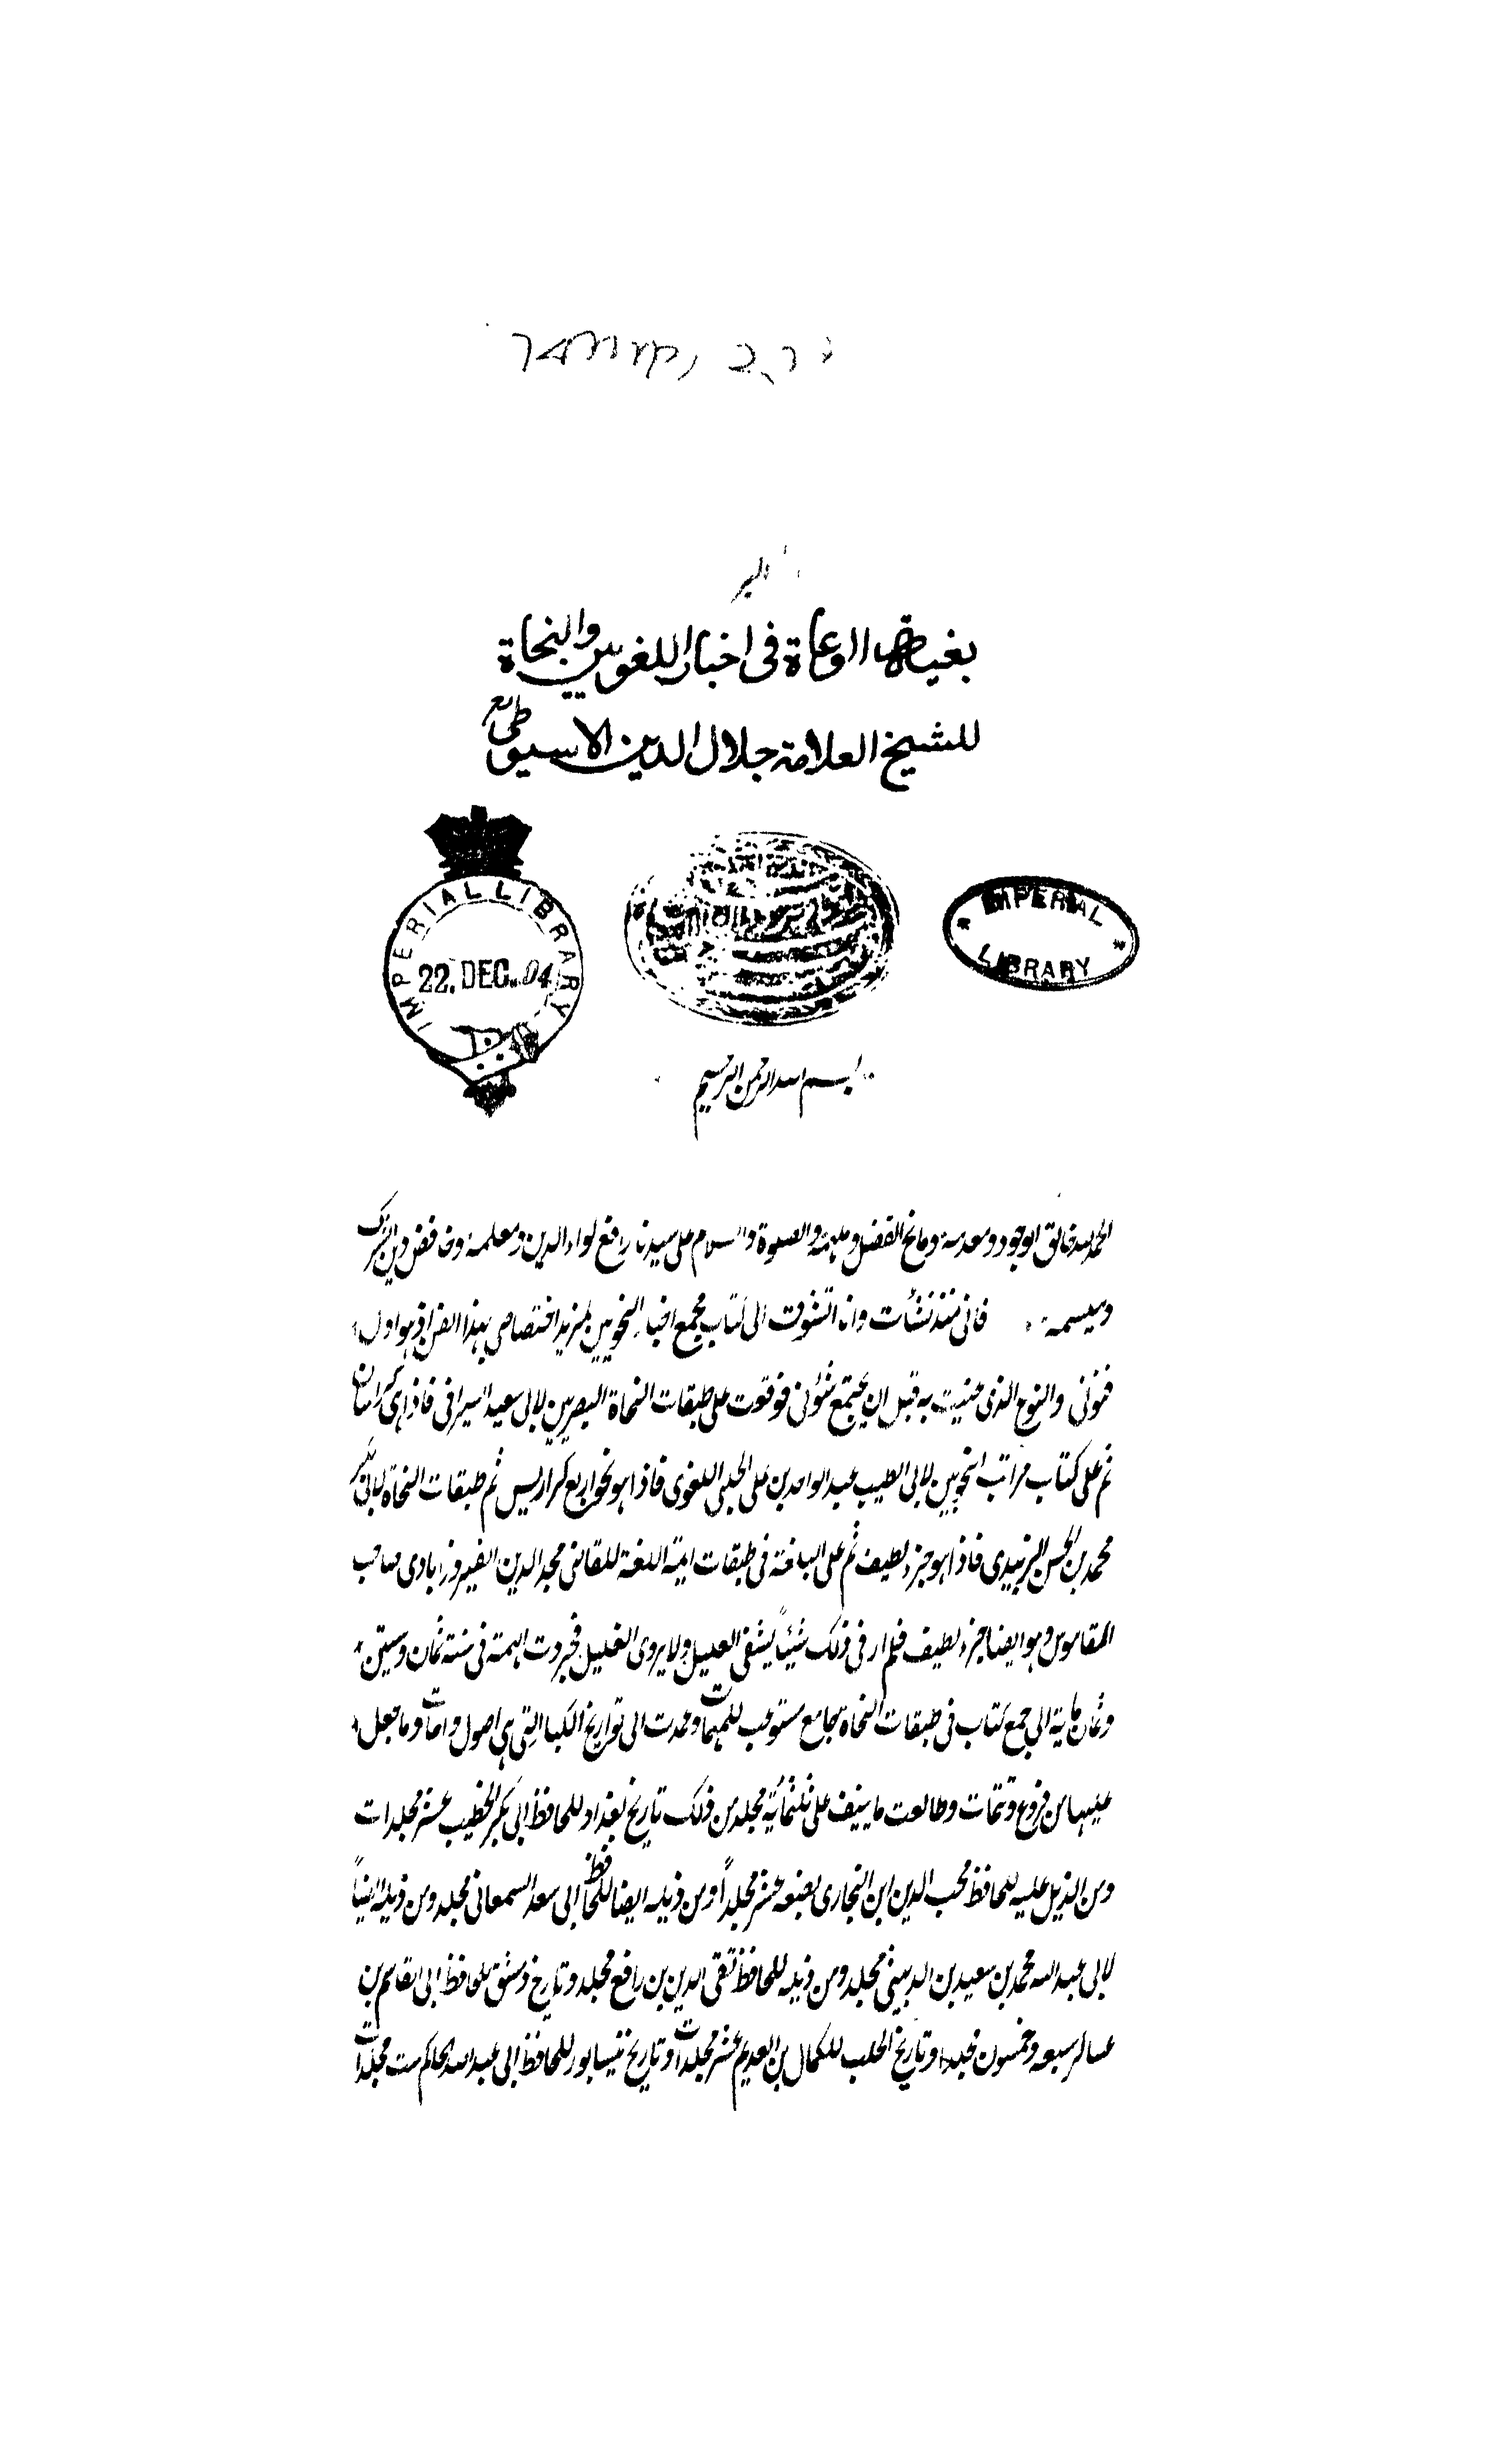 بغية الوعاة فى اخبار اللغويين والنحاة
للشيخ العلامة جلال الدين الاسيوطى
IMPERIAL LIBRARY
22. DEC. 04
IMPERIAL
LIBRARY
بسم الله الرحمن الرحيم
الحمد لله خالق الوجود ومعدمه ومانح الفضل وملهمه والصلوة والسلام على سيدنا رافع لواء الدين ومعلمه وخافض دين الشرك
وميسمه فانى منذ نشأت وانا اتشوق الى كتاب يجمع اخبار النحويين لمزيد اختصاص بهذا الفن اذ هو اول
فنونى والنوع الذى عنيت به قبل ان يجتمع شؤنى فوقفت على طبقات النحاة البصريين لابى سعيد السيرافى فاذا هى كراسان
ثم على كتاب مراتب النحويين لابى الطيب عبد الواحد بن على الحلبى اللغوى فاذا هو نحو اربع كراريس ثم طبقات النحاة لابى بكر
محمد بن الحسن الزبيدى فاذا هو جزء لطيف ثم على البلغة فى طبقات ايمة اللغة للقاضى مجد الدين الفيروزابادى صاحب
القاموس وهو ايضا جزء لطيف فلم ار فى ذلك شيئاً يشفى العليل ولا يروى الغليل فجردت الهمة فى سنة ثمان وستين
وثمان ماية الى جمع كتاب فى طبقات النحاة جامع مستوعب للمهمات وعمدت الى تواريخ الكبار التى هى اصول وامات وما جعل
عليها من فروع وتتمات وطالعت ما ينيف على ثلثمائة مجلد من ذلك تاريخ بغداد للحافظ ابى بكر الخطيب عشر مجلدات
ومن الذيل عليه للحافظ محب الدين ابن النجارى بضعة عشر مجلداً ومن ذيله ايضا للحافظ ابى سعد السمعانى مجلد ومن ذيله ايضاً
لابى عبد الله محمد بن سعيد بن الدبيثى مجلد ومن ذيله للحافظ تقى الدين بن رافع مجلد وتاريخ دمشق للحافظ ابى القاسم بن
عساكر سبعه وخمسون مجلدا وتاريخ الحلب للكمال بن العديم عشر مجلدات وتاريخ نيسابور للحافظ ابى عبد الله الحاكم ست مجلدات